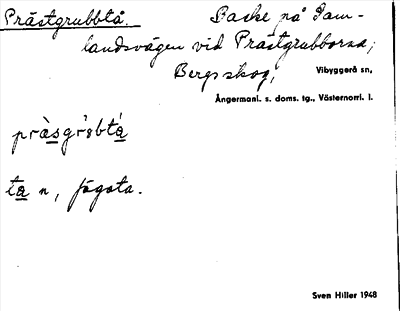 Prästgrubbtå. Backe på Gam-
landsvägen vid Prästgrubborna,
Bergsskog, Vibyggerå sn,
Ångermanl. s. doms. tg., Västernorrl. l.
ta n, fägata.
Sven Hiller 1948